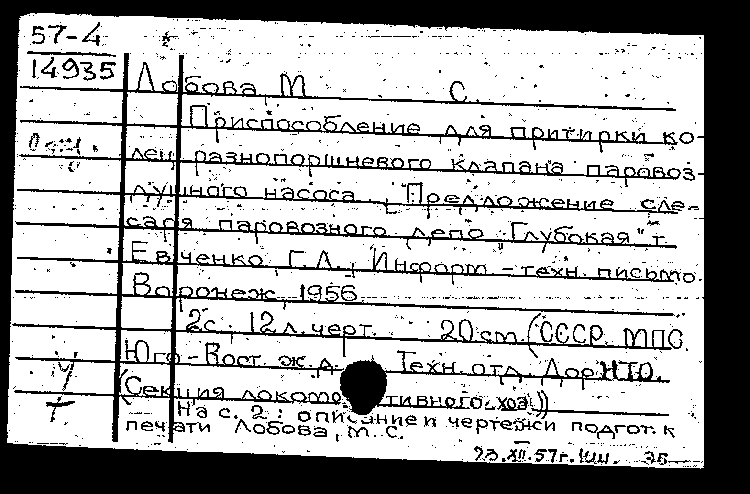 57-4
14935
Лобова, М. С.
Приспособление для притирки ко-
лец разнопоршневого клапана паровоз-
душного насоса. [Предложение сле-
саря паровозного депо "Глубокая" т.
Евченко, Г.Л.] Информ.-техн. письмо.
Воронеж, 1956.
2с., 12 л. черт. 20 cm. (СССР. МПС.
Юго-Вост. ж.д. Техн. отд. Дор НТО.
(Секция локомотивного хоз.))
На с. 2: описание и чертежи подгот. к
печати Лобова, М.С.
23.XII.57г.